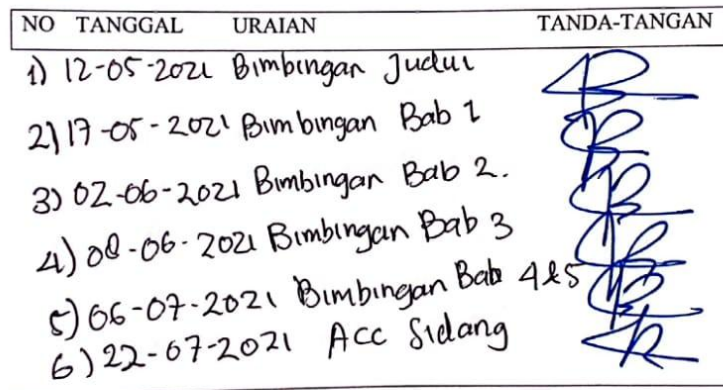 NO TANGGAL URAIAN TANDA-TANGAN
1) 12-05-2021 Bimbingan Judul
2) 17-05-2021 Bimbingan Bab 1
3) 02-06-2021 Bimbingan Bab 2.
4) 08-06-2021 Bimbingan Bab 3
5) 06-07-2021 Bimbingan Bab 4&5
6) 22-07-2021 Acc Sidang